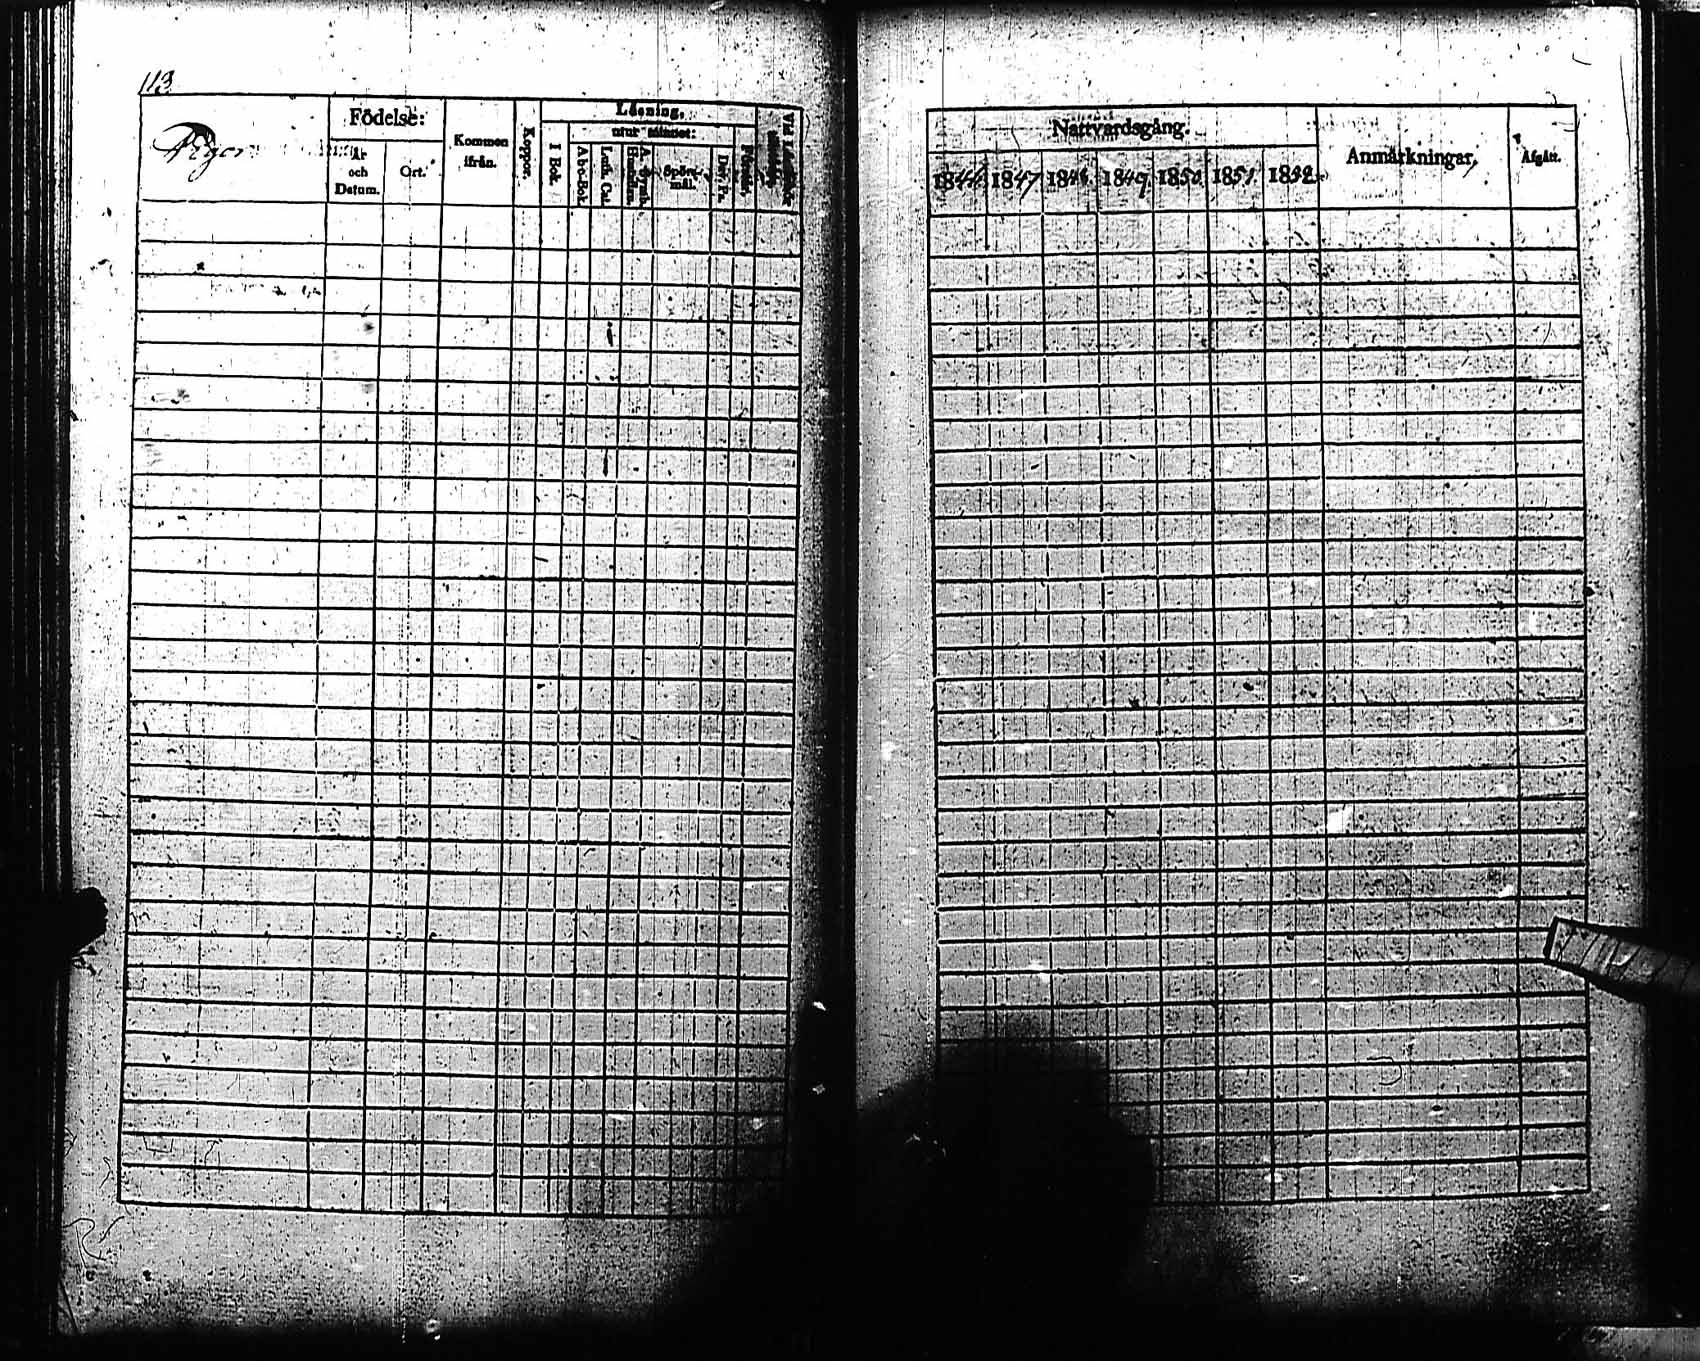 113.
Pigor
Födelse:
År
och
Datum.
Ort.
Kommen
ifrån.
Koppor.
Läsning,
utur minnet:
I Bok.
A-b-c-Bok.
Luth. Cat.
Spörs-
mål.
Dav. Ps.
Nattvardsgång.
1847. 1849. 1850. 1851. 1852.
Anmärkningar.
Afgått.